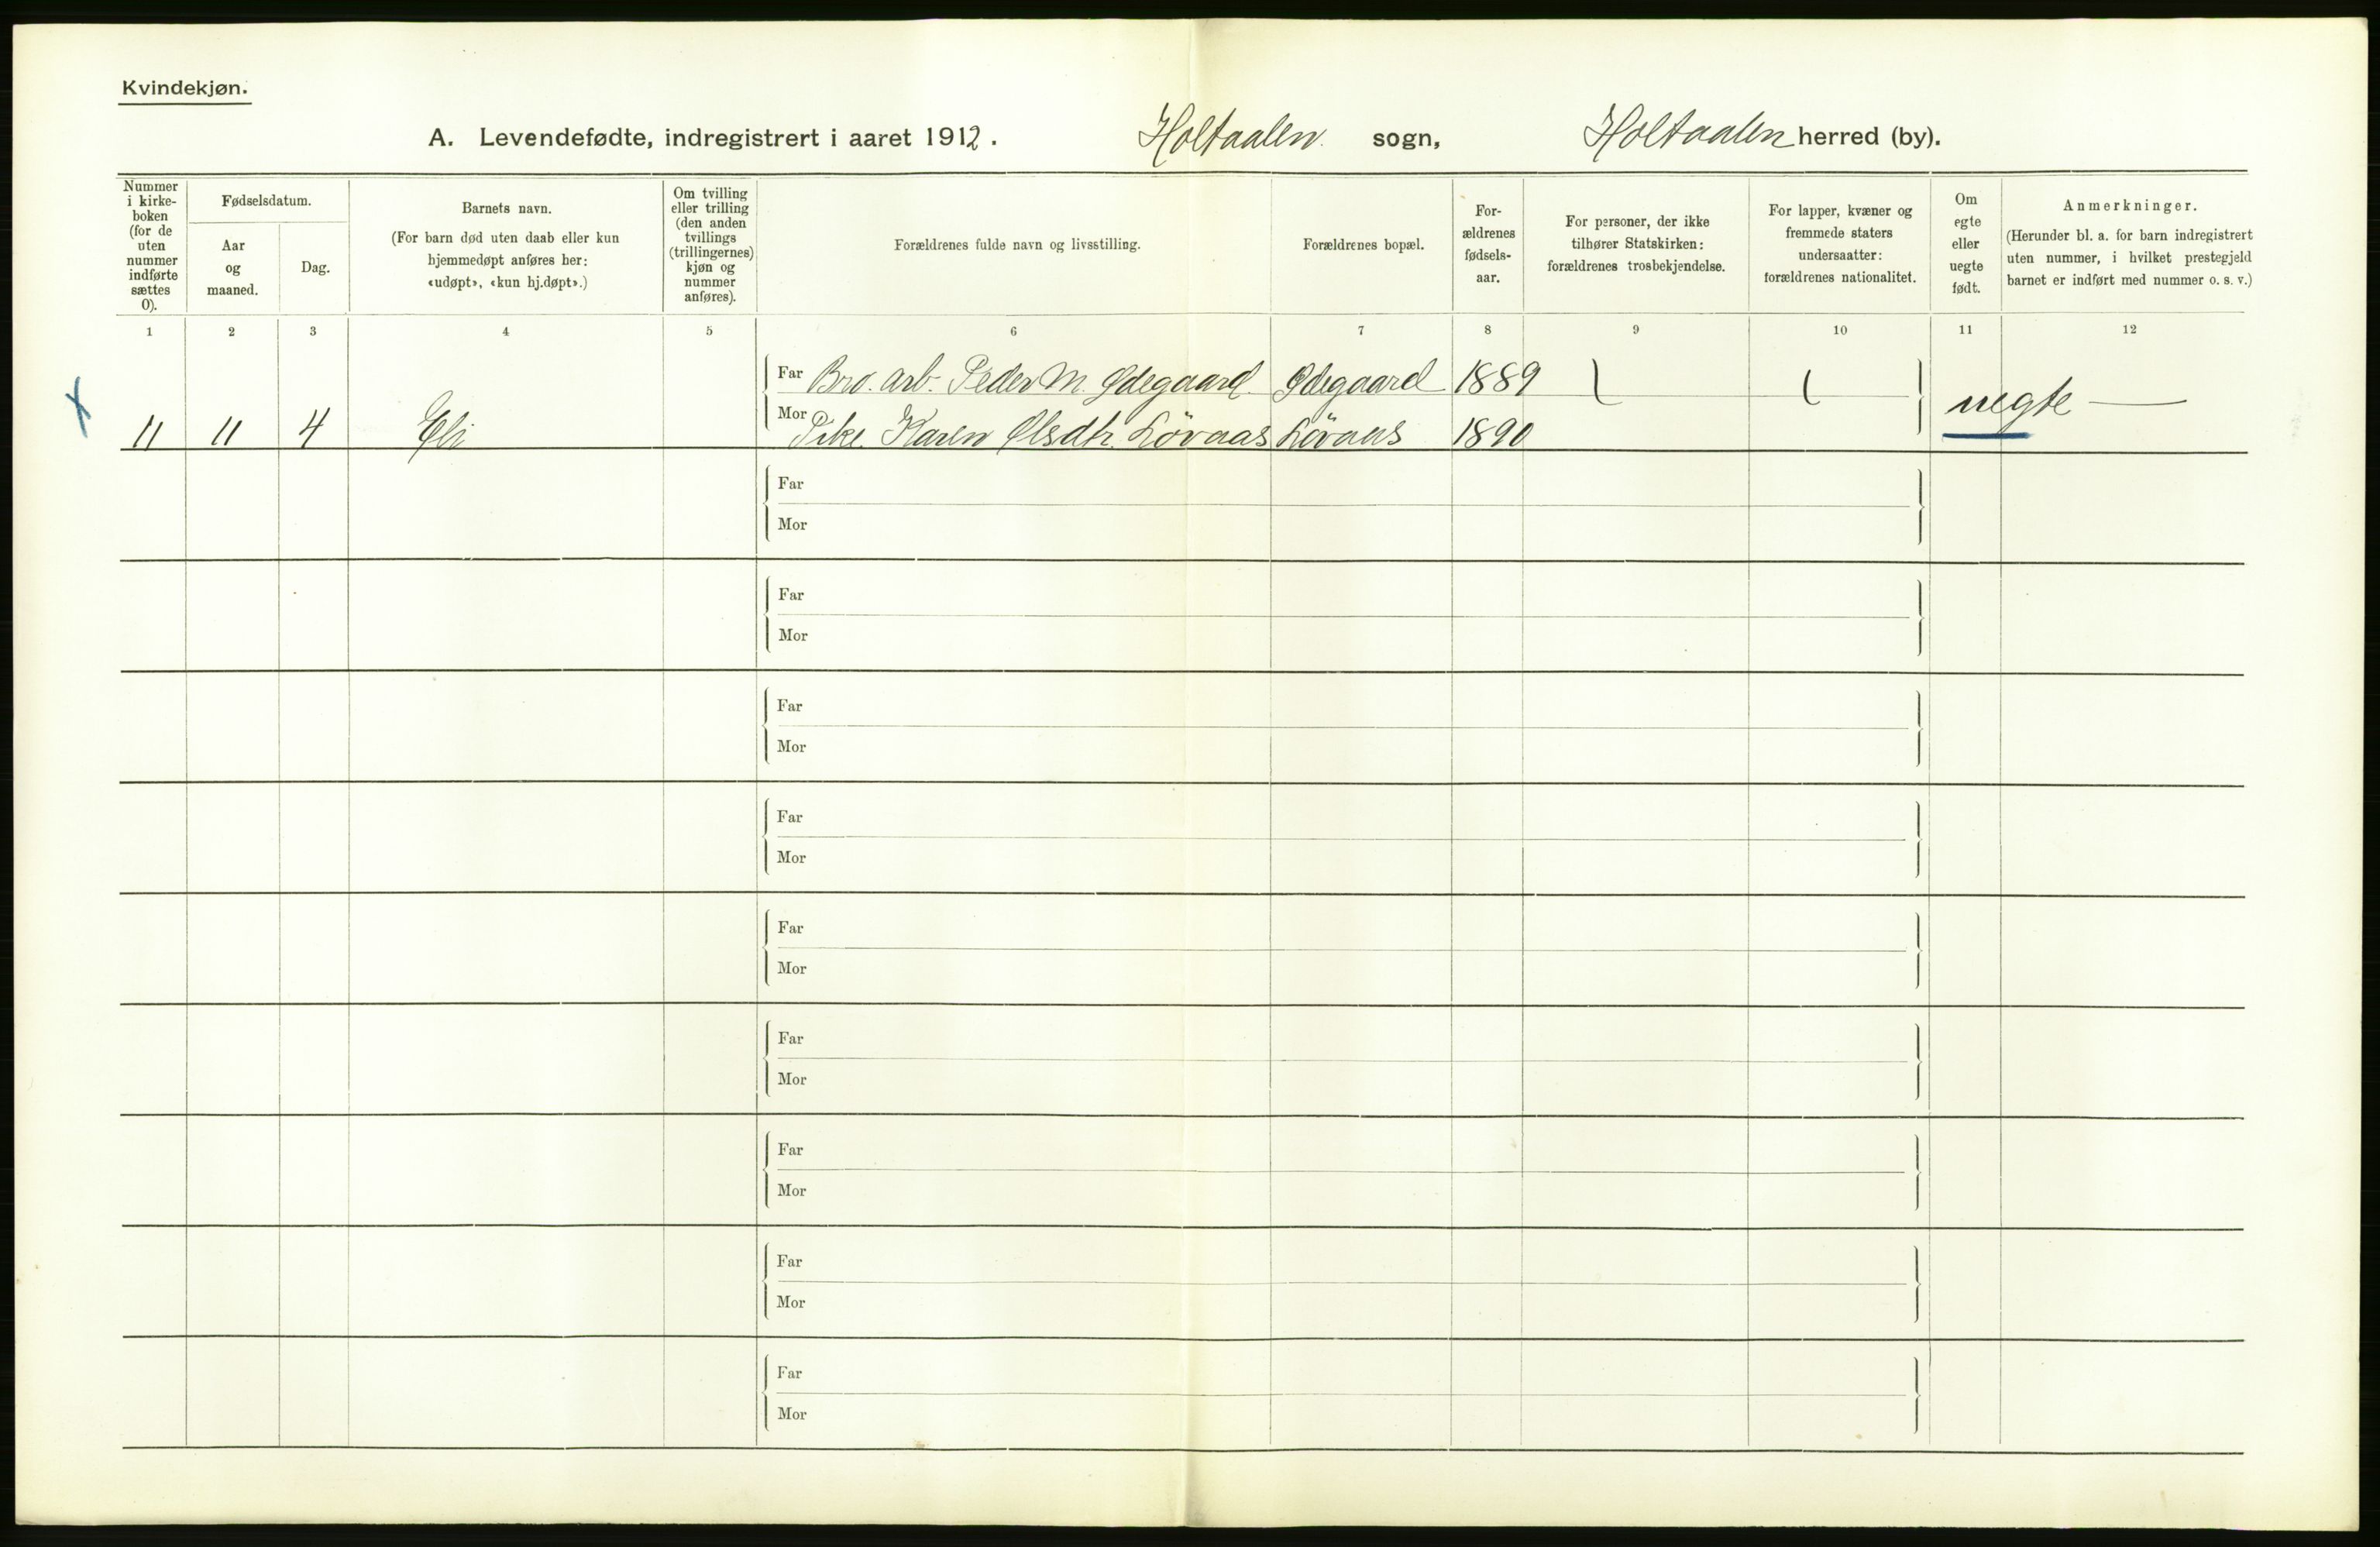 Kvindekjøn.
A. Levendefødte, indregistrert i aaret 1912. Holtaalen sogn, Holtaalen herred (by).
Nummer i kirke-boken (for de uten nummer indførte sættes 0).
Fødselsdatum.
Aar og maaned.
Dag.
Barnets navn.
(For barn død uten daab eller kun
hjemmedøpt anføres her:
«udøpt», «kun hj.døpt».)
Om tvilling
eller trilling
(den anden
tvillings
(trillingernes)
kjøn og
nummer
anføres).
Forældrenes fulde navn og livsstilling.
Forældrenes bopæl.
For-
ældrenes
fødsels-
aar.
For personer, der ikke
tilhører Statskirken:
forældrenes trosbekjendelse.
For lapper, kvæner og
fremmede staters
undersaatter:
forældrenes nationalitet.
Om
egte
eller
uegte
født.
Anmerkninger.
(Herunder bl. a. for barn indregistrert
uten nummer, i hvilket prestegjeld
barnet er indført med nummer o. s. v.)
1 2 3 4 5 6 7 8 9 10 11 12
Far Bro. arb. Peder M. Ødegaard. Ødegaard 1889
uegte —
11 11 4 Eli Mor Pike Karen Olsdtr. Lövaas Lövaas 1890
Far
Mor
Far
Mor
Far
Mor
Far
Mor
Far
Mor
Far
Mor
Far
Mor
Far
Mor
Far
Mor